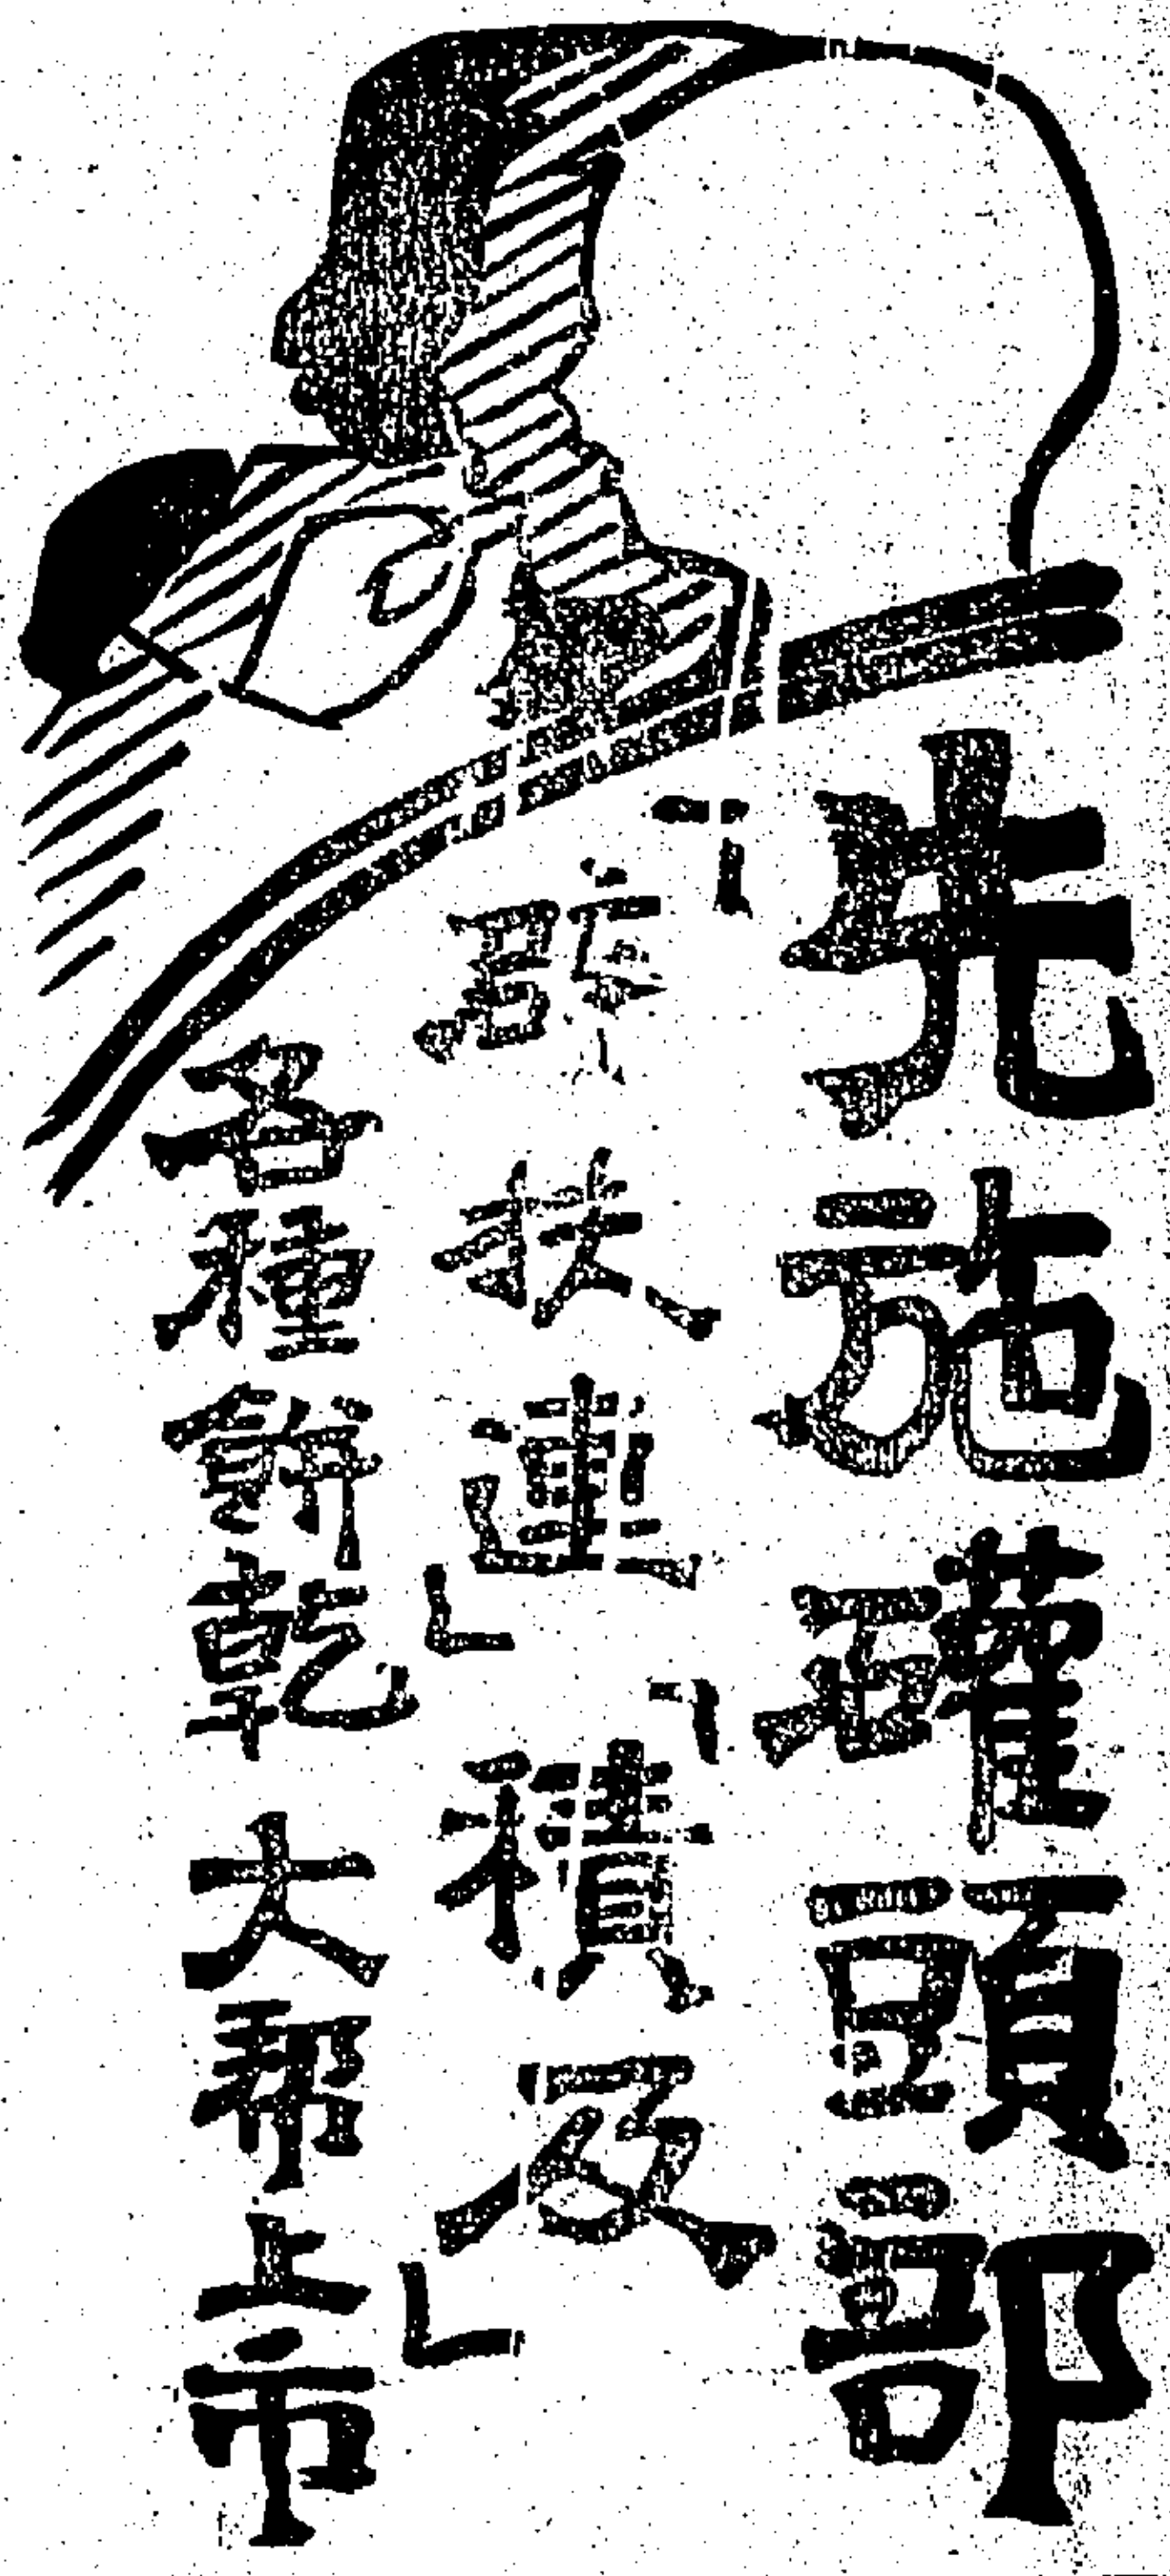 先施罐頭部
「扶連」「積及」
各種餅乾大帮上市